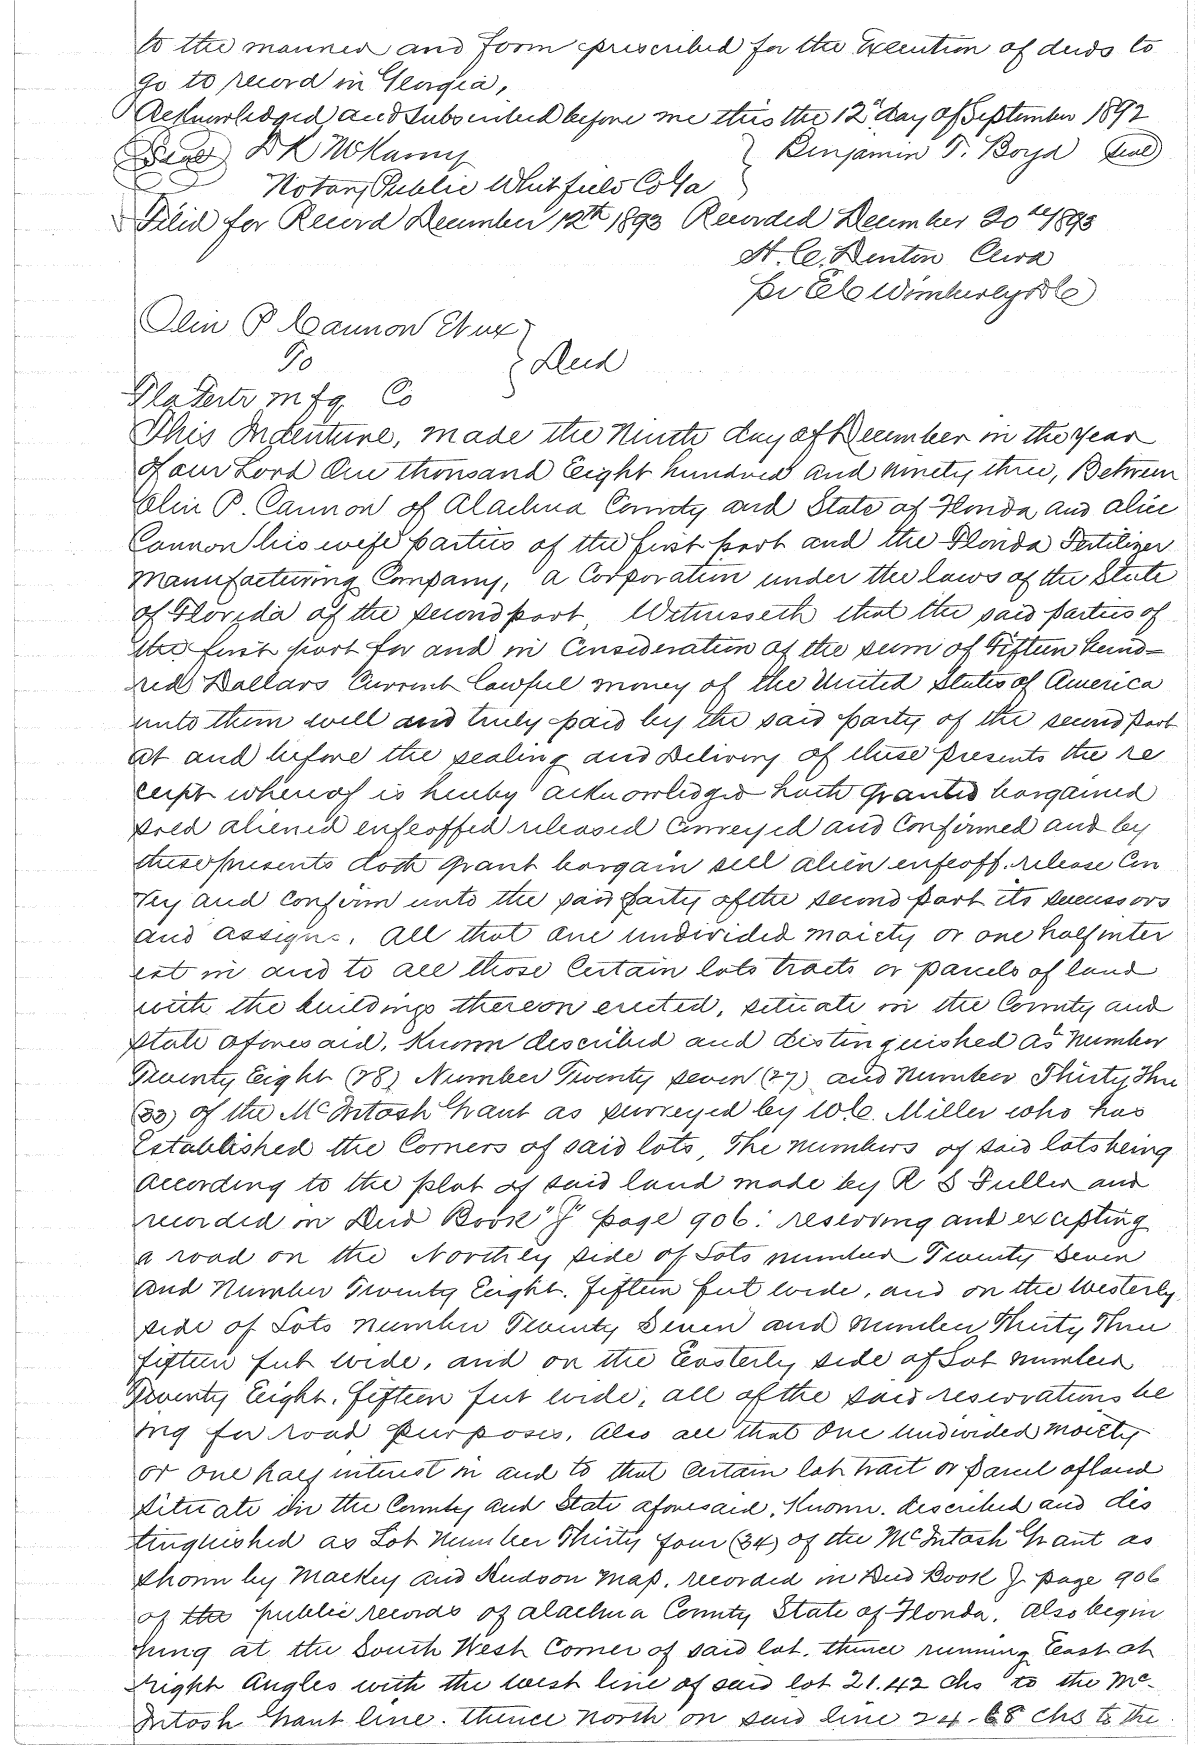 to the manner and form prescribed for the Execution of deeds to
go to record in Georgia,
Acknowledged and subscribed before me this the 12" day of September 1892
Seal D K McKamy } Benjamin T. Boyd Seal
Notary Public Whitfield Co Ga
Filed for Record December 12th 1893 Recorded December 20th 1893
H. C. Denton Clerk
Per E C Wimberly D C
Olin P Cannon Et ux }
To } Deed
Fla Fertr Mfg Co
This Indenture, made the Ninth day of December in the year
of our Lord One thousand Eight hundred and ninety three, Between
Olin P. Cannon of Alachua County and State of Florida and Alice
Cannon his wife parties of the first part and the Florida Fertilizer
Manufacturing Company, a Corporation under the laws of the State
of Florida of the second part, Witnesseth that the said parties of
the first part for and in Consideration of the sum of Fifteen hund-
red Dollars Current lawful money of the United States of America
unto them well and truly paid by the said party of the second part
at and before the sealing and Delivery of these presents the re
ceipt whereof is hereby acknowledged hath granted bargained
sold aliened enfeoffed released Conveyed and Confirmed and by
these presents doth grant bargain sell alien enfeoff release Con
vey and Confirm unto the said party of the second part its successors
and assigns. All that one undivided moiety or one half inter
est in and to all those Certain lots tracts or parcels of land
with the buildings thereon erected, situate in the County and
State aforesaid, Known described and distinguished as Number
Twenty Eight (28) Number Twenty seven (27) and Number Thirty Three
(33) of the McIntosh Grant as surveyed by W. C. Miller who has
Established the Corners of said lots, The numbers of said lots being
According to the plat of said land made by R S Fuller and
recorded in Deed Book "J" page 906: reserving and excepting
a road on the Northly side of Lots number Twenty Seven
and Number Twenty Eight. fifteen feet wide, and on the Westerly
side of Lots number Twenty Seven and Number Thirty Three
fifteen feet wide, and on the Easterly side of Lot number
Twenty Eight, fifteen feet wide, all of the said reservations be
ing for road purposes. Also all that One undivided moiety
or one half interest in and to that Certain lot tract or parcel of land
Situate in the County and State aforesaid, Known. described and dis
tinguished as Lot Number Thirty four (34) of the McIntosh Grant as
shown by Mackey and Hudson Map. recorded in Deed Book J page 906
of the public records of Alachua County State of Florida. Also begin
ning at the South West Corner of said lot. thence running East at
right Angles with the west line of said lot 21.42 chs to the Mc-
Intosh Grant line. thence North on said line 24.68 chs to the